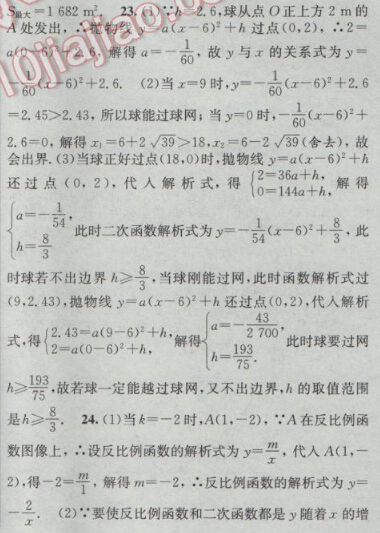 S最大=1 682 m². 23.(1)∵h=2.6,球从点 O 正上方 2 m 的
A 处发出,∴抛物线 y=a(x-6)²+h 过点(0,2),∴2=
a(0-6)²+2.6,解得 a=-1/60,故 y 与 x 的关系式为 y=
-1/60(x-6)²+2.6. (2)当 x=9 时,y=-1/60(x-6)²+2.6
=2.45>2.43,所以球能过球网;当 y=0 时,-1/60(x-6)²+
2.6=0,解得 x₁=6+2√39>18,x₂=6-2√39(舍去),故
会出界.(3)当球正好过点(18,0)时,抛物线 y=a(x-6)²+h
还过点(0,2),代入解析式,得{2=36a+h, 0=144a+h,解得
{a=-1/54, h=8/3 此时二次函数解析式为 y=-1/54(x-6)²+8/3,此
时球若不出边界 h≥8/3,当球刚能过网,此时函数解析式过
(9,2.43),抛物线 y=a(x-6)²+h 还过点(0,2),代入解析
式,得{2.43=a(9-6)²+h, 2=a(0-6)²+h, 解得{a=-43/2 700, h=193/75. 此时球要过网
h≥193/75,故若球一定能越过球网,又不出边界,h 的取值范围
是h≥8/3. 24.(1)当 k=-2 时,A(1,-2),∵A 在反比例函
数图像上,∴设反比例函数的解析式为 y=m/x,代入 A(1,-
2),得-2=m/1,解得 m=-2,∴反比例函数的解析式为 y=
-2/x. (2)∵要使反比例函数和二次函数都是 y 随着 x 的增